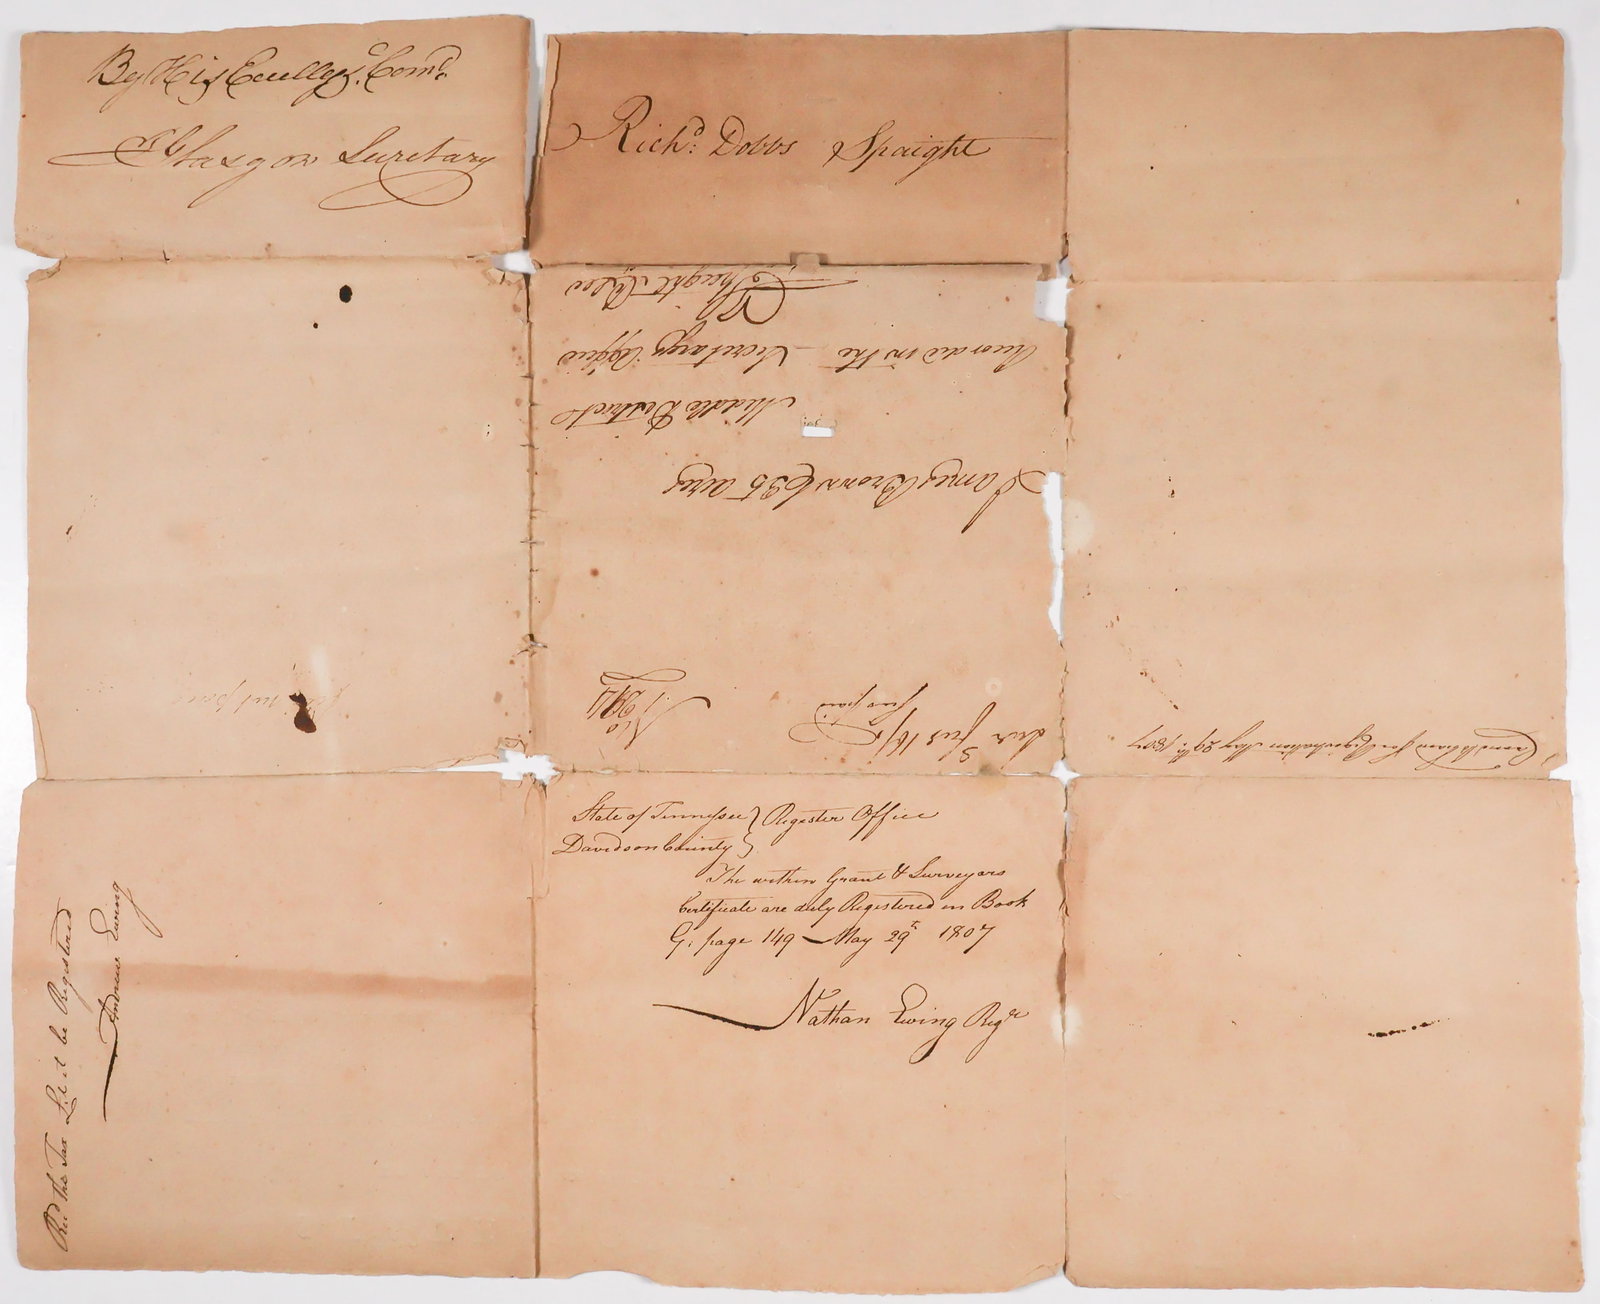 By His Excelly:s Comd.
J Glasgow Secretary
Richd: Dobbs Spaight
James Brown 635 acres
Middle District
Recorded in the Secretarys Office
Spaight
No
fees paid
fees not paid
Registration May 29th: 1807
State of Tennessee } Register Office
Davidson County }
The within Grant & Surveyors
Certificate are duly Registered in Book
G: page 149 — May 29t 1807
Nathan Ewing Regr
Recd the Tax Let it be Registered
Andrew Ewing